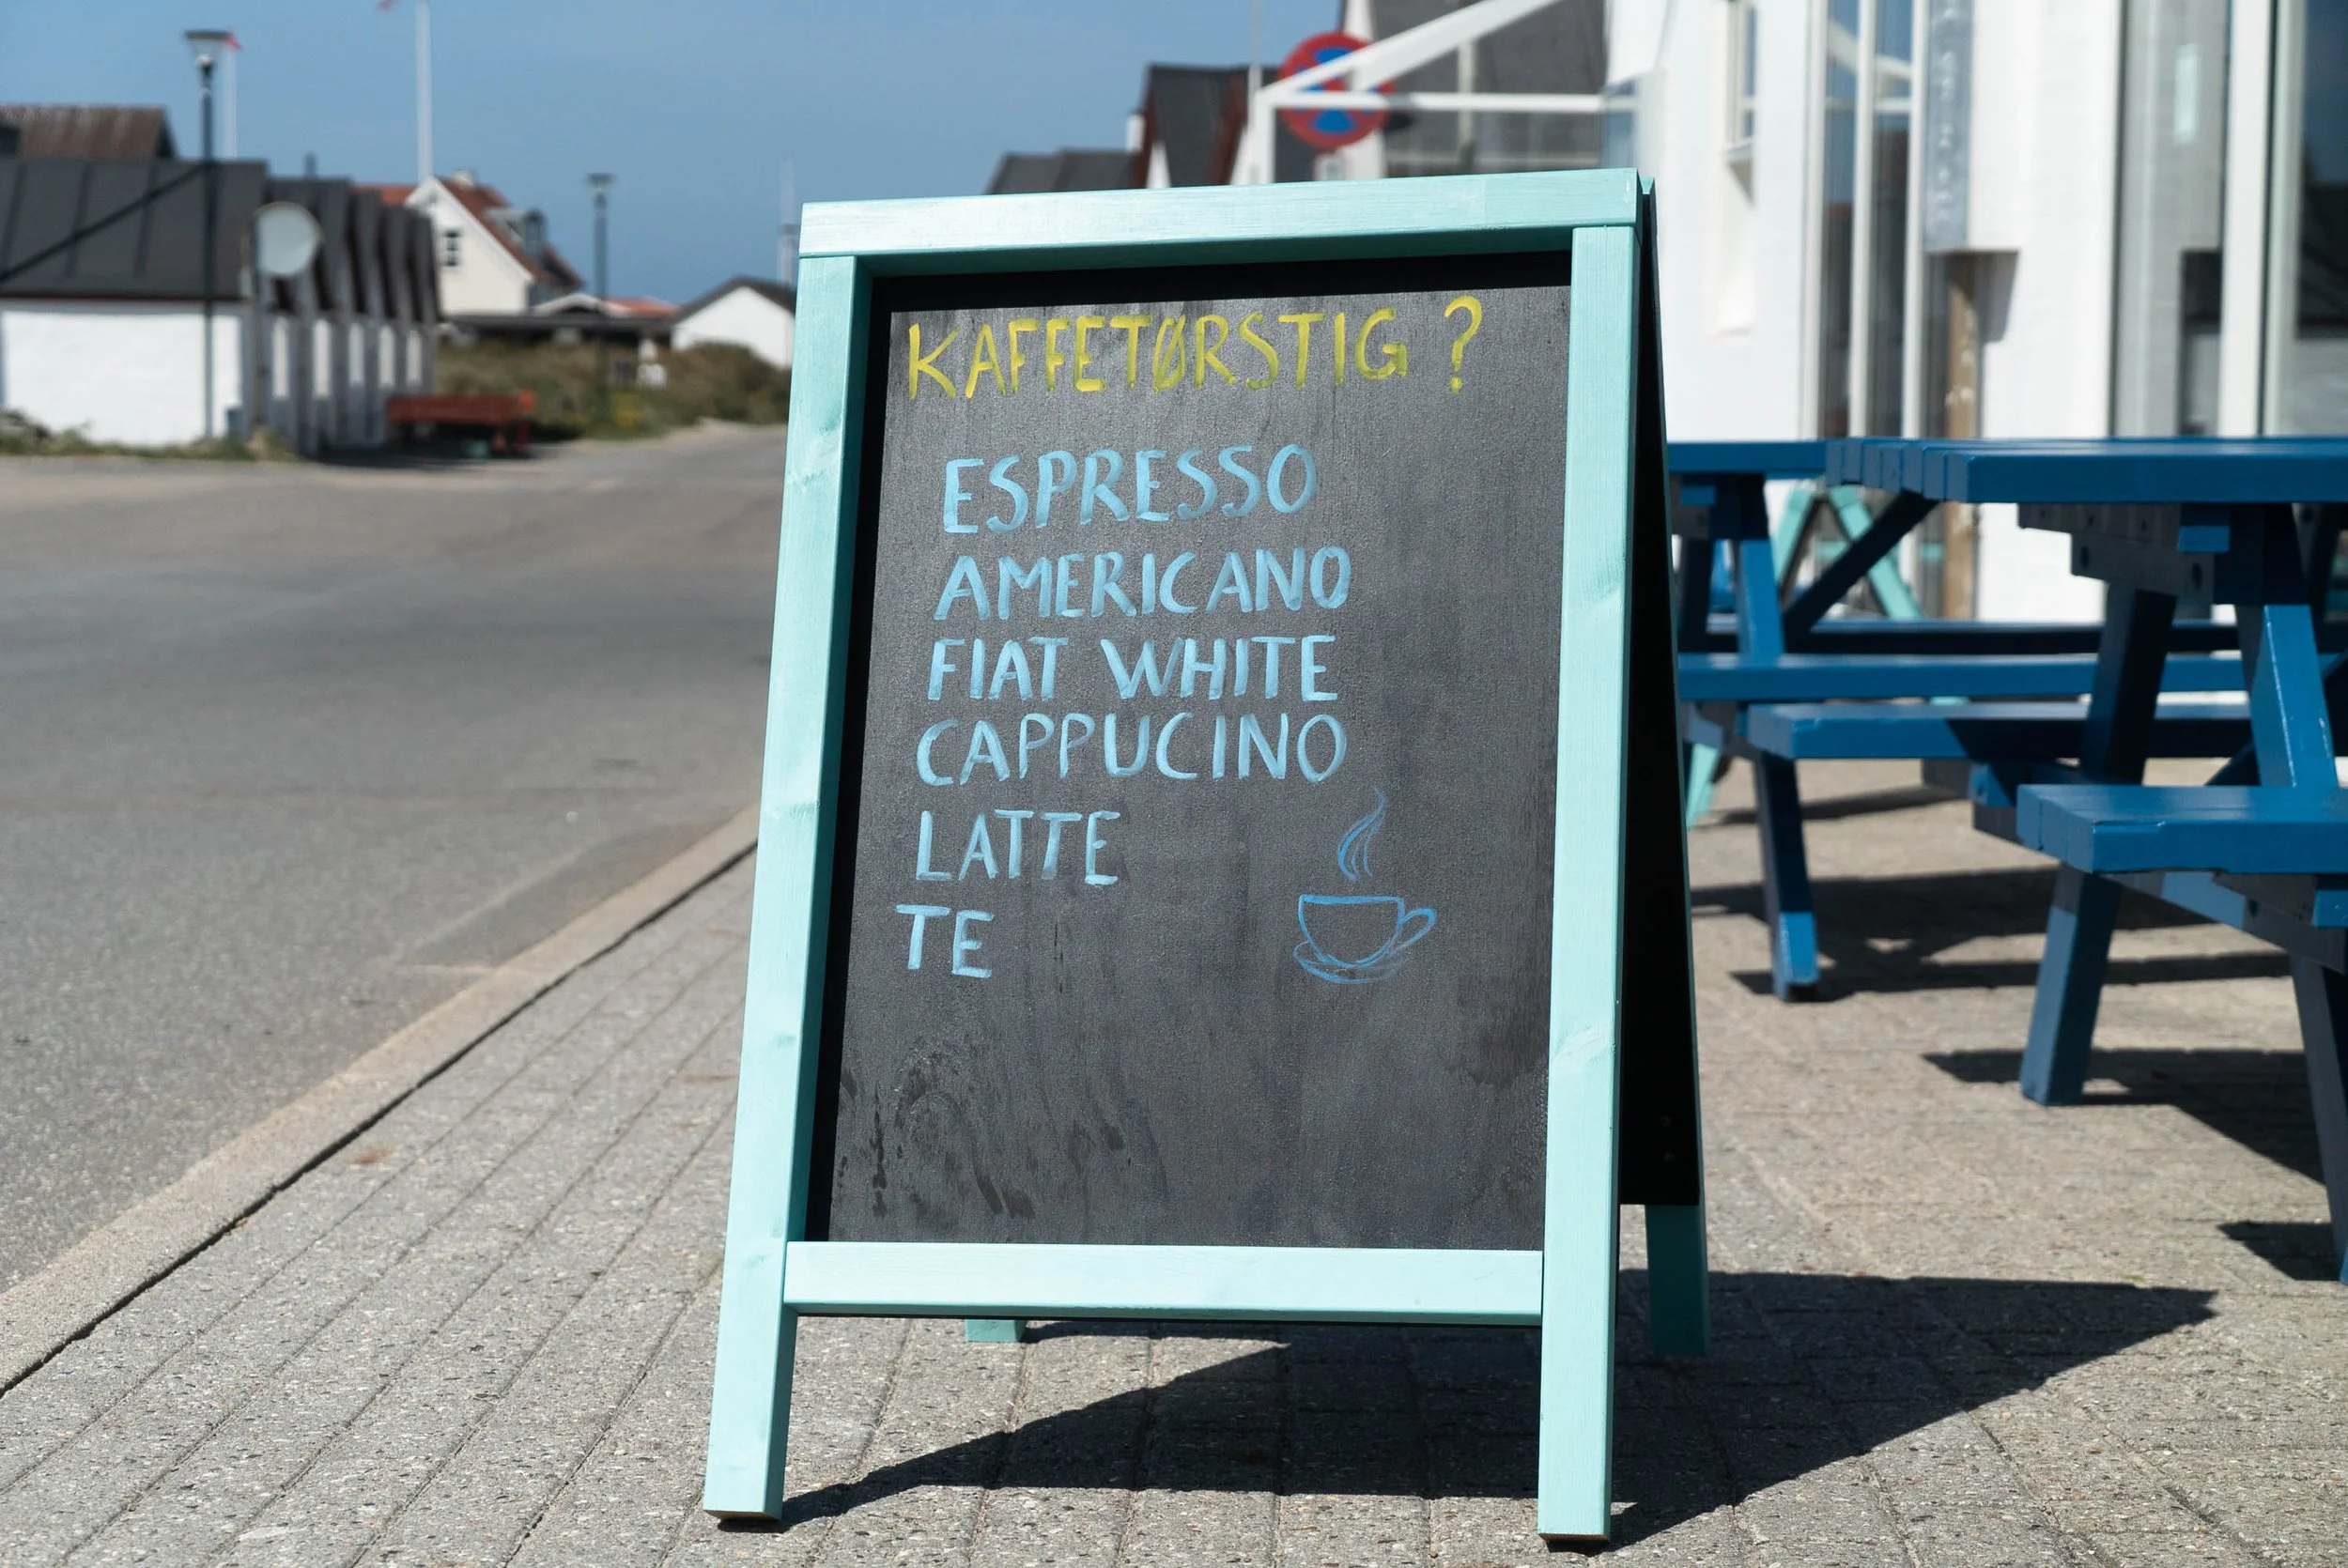 KAFFETØRSTIG ?
ESPRESSO
AMERICANO
FIAT WHITE
CAPPUCINO
LATTE
TE